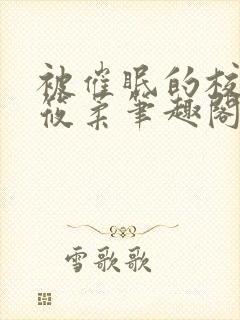 被催眠的校
筱柔笔趣阁
雪歌歌